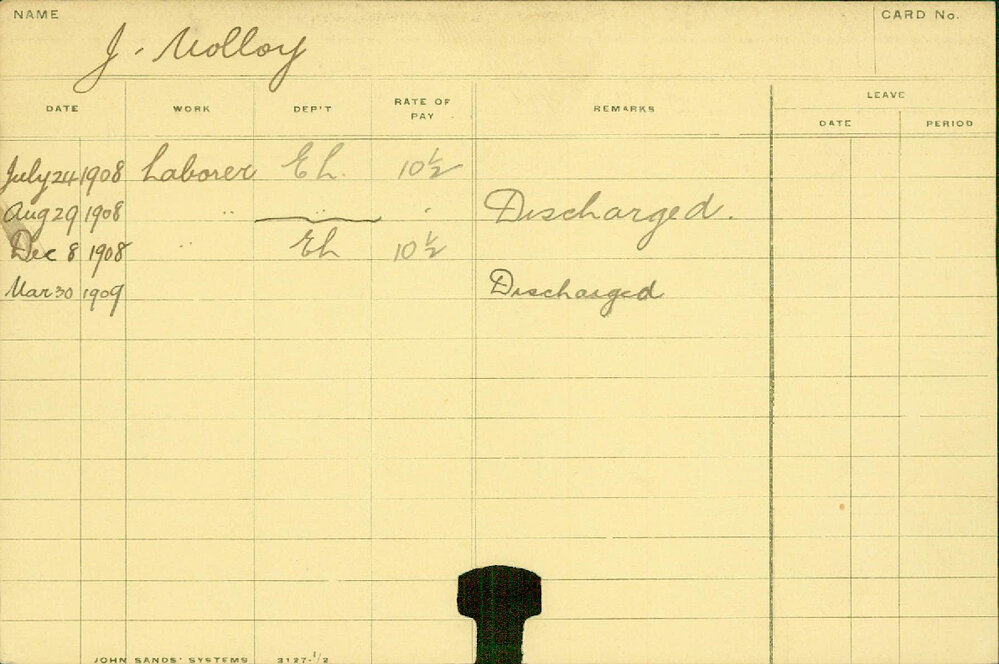 NAME CARD No.
J. Molloy
DATE WORK DEP'T RATE OF PAY REMARKS LEAVE
DATE PERIOD
July 24 1908 Laborer Eh. 10½
Aug 29 1908 " " " Discharged.
Dec 8 1908 " Eh 10½
Mar 30 1909 Discharged
JOHN SANDS' SYSTEMS 3127-1/2